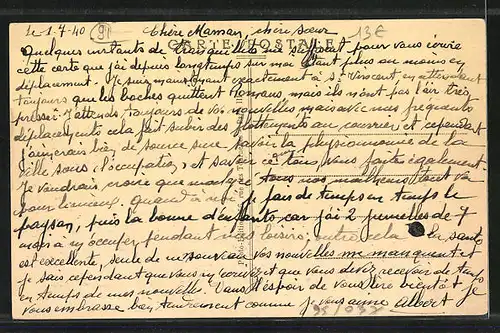 le 1.7.40 91 Chère Maman, chère sœur 13€
CARTE POSTALE
Quelques instants de tranquillité me suffisent pour vous écrire
cette carte que j'ai depuis longtemps sur moi étant plus ou moins en
déplacement. Je suis maintenant exactement à St Vincent en attendant
toujours que les boches quittent mais ils n'ont pas l'air très
pressé. J'attends toujours de vos nouvelles mais avec mes fréquents
déplacements cela fait subir des flottements au courrier et cependant
j'aimerais bien de source sure savoir la physionomie de la
ville sous l'occupation et savoir ce que tous vous faites également.
Je voudrais croire que malgré tous nos malheurs tout va
pour le mieux. Quant à moi je fais de temps en temps le
paysan, puis la bonne d'enfants car j'ai 2 jumelles de 7
mois à m'occuper pendant mes loisirs, outre cela la santé
est excellente, seules de nouveau vos nouvelles me manquent et
je sais cependant que vous m'écrivez et que vous devez recevoir de temps
en temps de mes nouvelles. Dans l'espoir de vous lire bientôt je
vous embrasse bien tendrement comme je vous aime Albert